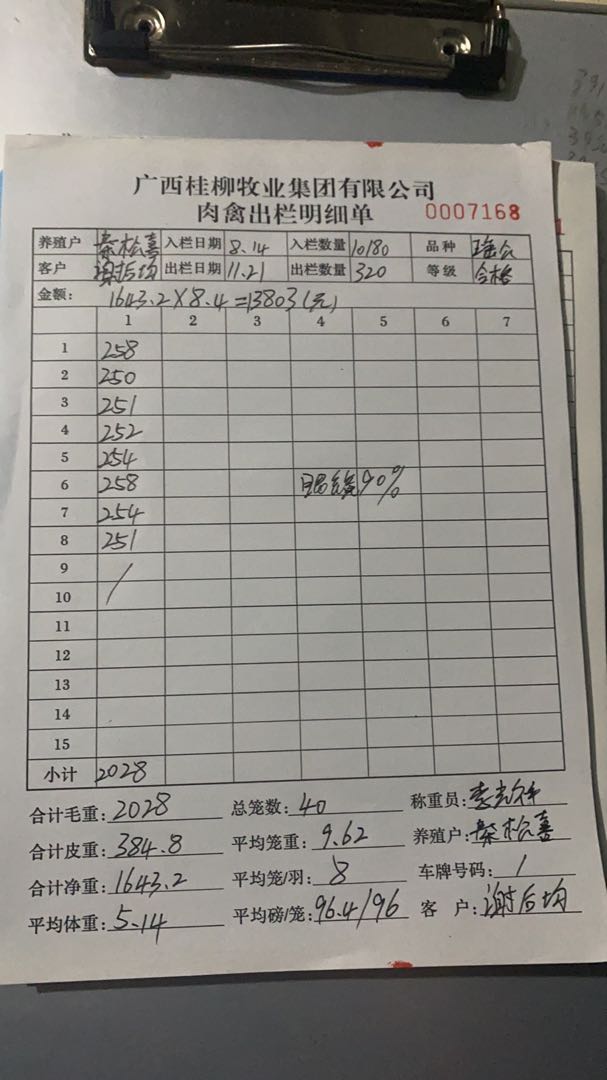 广西桂柳牧业集团有限公司
肉禽出栏明细单 0007168
养殖户 秦松喜 入栏日期 8.14 入栏数量 10180 品种 瑶公
客户 谢后均 出栏日期 11.21 出栏数量 320 等级 合格
金额: 1643.2×8.4=13803(元)
1 2 3 4 5 6 7
1 258
2 250
3 251
4 252
5 254
6 258 90%
7 254
8 251
9
10
11
12
13
14
15
小计 2028
合计毛重: 2028 总笼数: 40 称重员:
合计皮重: 384.8 平均笼重: 9.62 养殖户: 秦松喜
合计净重: 1643.2 平均笼/羽: 8 车牌号码: 1
平均体重: 5.14 平均磅/笼: 96.4/96 客 户: 谢后均